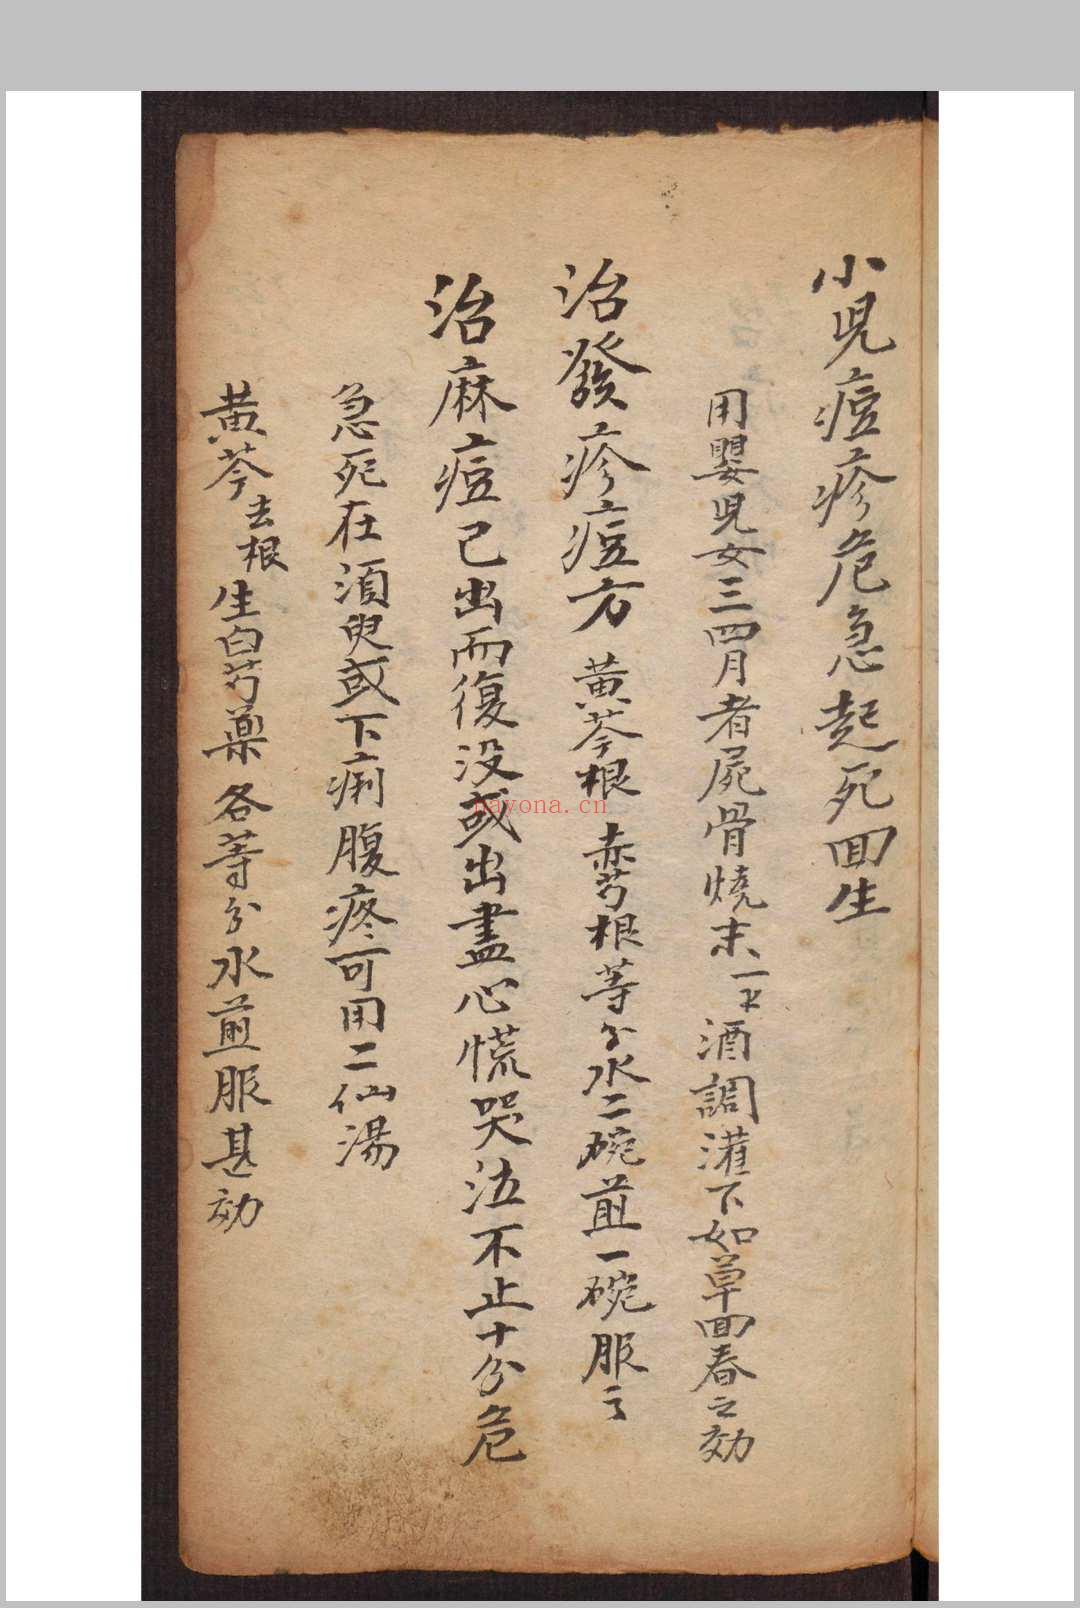 小兒痘疹危急起死回生
用嬰兒女三四月者屍骨燒末一才酒調灌下如草回春之効
治發疹痘方 黃芩根 赤芍根等分水二碗煎一碗服之
治麻痘已出而復没或出盡心慌哭泣不止十分危
急死在須臾或下痢腹疼可用二仙湯
黃芩去根生白芍藥各等分水煎服甚効
nayona.cn